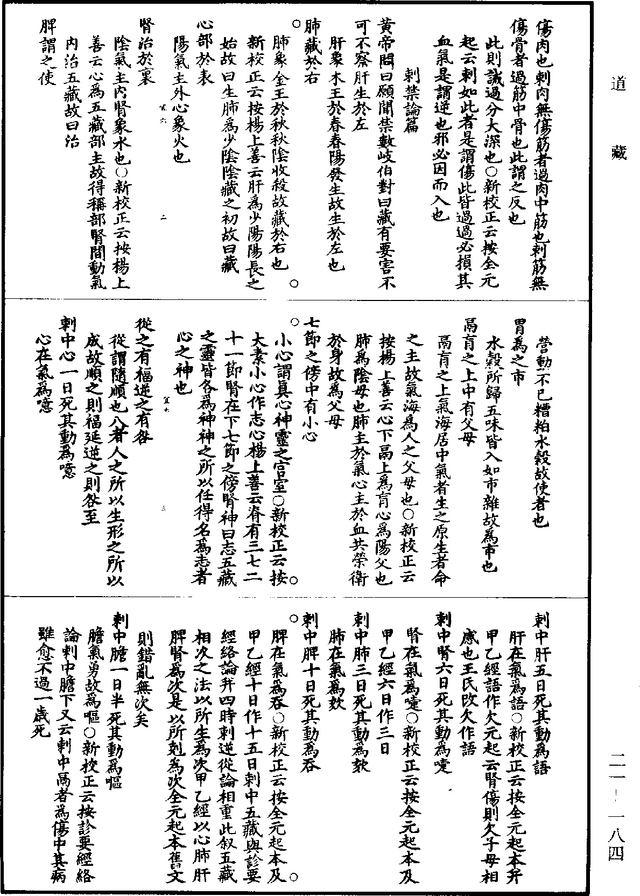 道藏
傷肉也刺肉無傷筋者過肉中筋也刺筋無
傷骨者過筋中骨也此謂之反也
此則誡過分大深也○新校正云按全元
起云刺如此者是謂傷此皆過過必損其
血氣是謂逆也邪必因而入也
刺禁論篇
黃帝問曰願聞禁數岐伯對曰藏有要害不
可不察肝生於左
肝象木王於春春陽發生故生於左也
肺藏於右
肺象金王於秋秋陰收殺故藏於右也
新校正云按楊上善云肝為少陽陽長之
始故曰生肺為少陰陰藏之初故曰藏
心部於表
陽氣主外心象火也
腎治於裏
陰氣主內腎象水也○新校正云按楊上
善云心為五藏部主故得稱部腎間動氣
內治五藏故曰治
脾謂之使
營動不已糟粕水穀故使者也
胃為之市
水穀所歸五味皆入如市雜故為市也
鬲肓之上中有父母
鬲肓之上氣海居中氣者生之原生者命
之主故氣海為人之父母也○新校正云
按楊上善云心下鬲上為肓心為陽父也
肺為陰母也肺主於氣心主於血共榮衛
於身故為父母
七節之傍中有小心
小心謂真心神靈之宮室○新校正云按
太素小心作志心楊上善云脊有三七二
十一節腎在下七節之傍腎神曰志五藏
之靈皆名為神神之所以任得名為志者
心之神也
從之有福逆之有咎
從謂隨順也八者人之所以生形之所以
成故順之則福延逆之則咎至
刺中心一日死其動為噫
心在氣為噫
刺中肝五日死其動為語
肝在氣為語○新校正云按全元起本并
甲乙經語作欠元起云腎傷則欠子母相
感也王氏改欠作語
刺中腎六日死其動為嚏
腎在氣為嚏○新校正云按全元起本及
甲乙經六日作三日
刺中肺三日死其動為欬
肺在氣為欬
刺中脾十日死其動為吞
脾在氣為吞○新校正云按全元起本及
甲乙經十日作十五日刺中五藏與診要
經絡論并四時刺逆從論相重此敘五藏
相次之法以所生為次甲乙經以心肺肝
脾腎為次是以所剋為次全元起本舊文
則錯亂無次矣
刺中膽一日半死其動為嘔
膽氣勇故為嘔○新校正云按診要經絡
論刺中膽下又云刺中鬲者為傷中其病
雖愈不過一歲死
二一—一八四